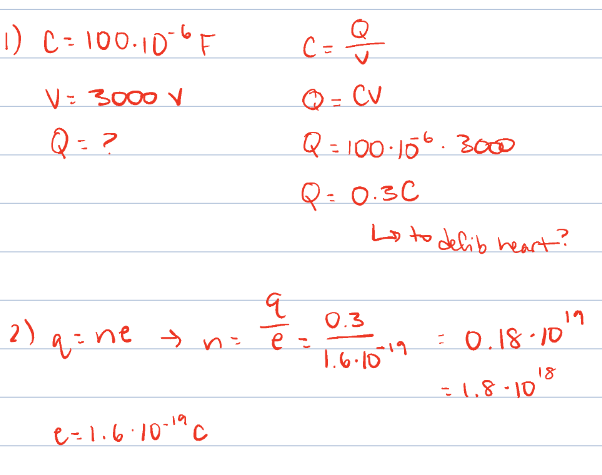 1) C = 100·10⁻⁶ F
C = Q/V
V = 3000 V
Q = CV
Q = ?
Q = 100·10⁻⁶ · 3000
Q = 0.3C
↳ to defib heart?
2) q = ne → n = q/e = 0.3/1.6·10⁻¹⁹ = 0.18·10¹⁹
= 1.8·10¹⁸
e = 1.6·10⁻¹⁹ C